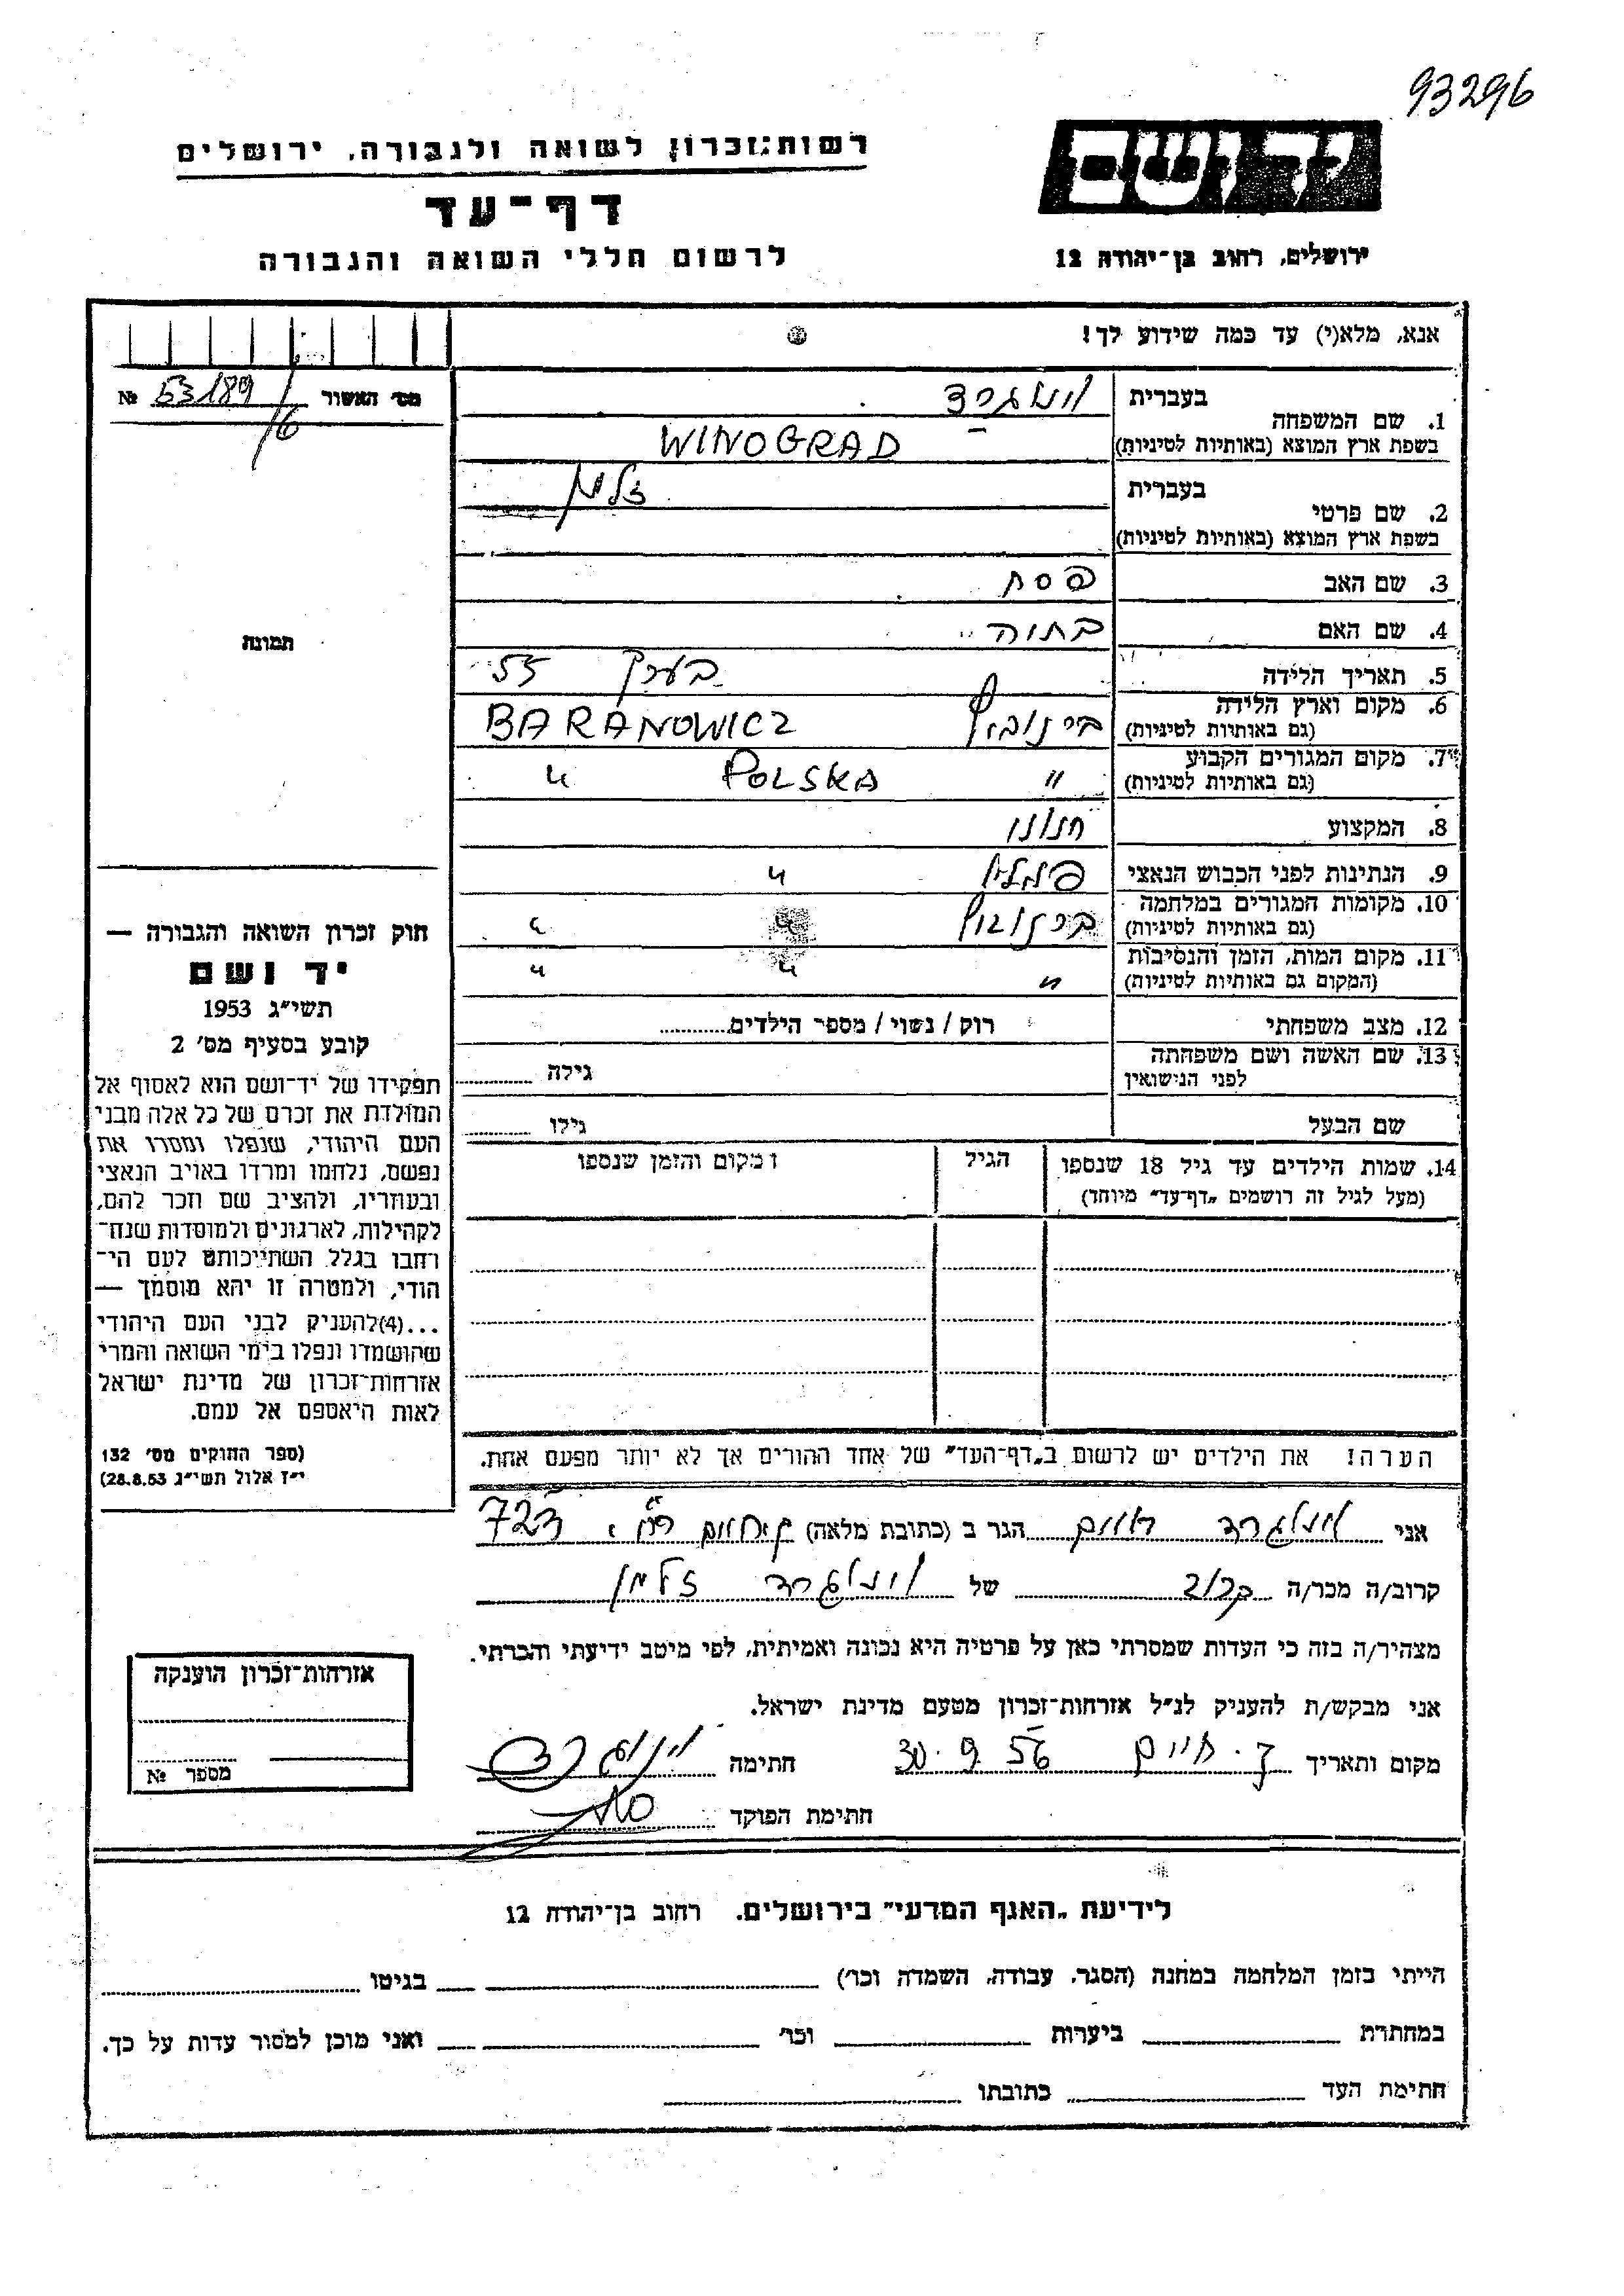 93296
יד ושם
ירושלים, רחוב בן־יהודה 12
רשות־זכרון לשואה ולגבורה, ירושלים
דף־עד
לרשום חללי השואה והגבורה
אנא, מלא(י) עד כמה שידוע לך!
מס׳ האשור № 53189/6
1. שם המשפחה בעברית וינוגרד
בשפת ארץ המוצא (באותיות לטיניות) WINOGRAD
2. שם פרטי בעברית זלמן
בשפת ארץ המוצא (באותיות לטיניות)
3. שם האב פסח
4. שם האם
5. תאריך הלידה בערך 55
6. מקום וארץ הלידה (גם באותיות לטיניות) ברנוביץ BARANOWICZ
7. מקום המגורים הקבוע (גם באותיות לטיניות) " POLSKA "
8. המקצוע חנוני
9. הנתינות לפני הכבוש הנאצי פולין "
10. מקומות המגורים במלחמה (גם באותיות לטיניות) ברנוביץ " "
11. מקום המות, הזמן והנסיבות (המקום גם באותיות לטיניות) " " "
12. מצב משפחתי רוק / נשוי / מספר הילדים
13. שם האשה ושם משפחתה לפני הנישואין גילה
שם הבעל גילו
14. שמות הילדים עד גיל 18 שנספו (מעל לגיל זה רושמים „דף־עד" מיוחד) הגיל מקום והזמן שנספו
הערה! את הילדים יש לרשום ב„דף־העד" של אחד ההורים אך לא יותר מפעם אחת.
תמונה
חוק זכרון השואה והגבורה —
יד ושם
תשי״ג 1953
קובע בסעיף מס׳ 2
תפקידו של יד־ושם הוא לאסוף אל
המולדת את זכרם של כל אלה מבני
העם היהודי, שנפלו ומסרו את
נפשם, נלחמו ומרדו באויב הנאצי
ובעוזריו, ולהציב שם וזכר להם,
לקהילות, לארגונים ולמוסדות שנח־
רבו בגלל השתייכותם לעם הי־
הודי, ולמטרה זו יהא מוסמך —
...(4)להעניק לבני העם היהודי
שהושמדו ונפלו בימי השואה והמרי
אזרחות־זכרון של מדינת ישראל
לאות היאספם אל עמם.
(ספר החוקים מס׳ 132
י״ז אלול תשי״ג 28.8.53)
אני וינוגרד הגר ב (כתובת מלאה) 723
קרוב/ה מכר/ה קרוב של וינוגרד זלמן
מצהיר/ה בזה כי העדות שמסרתי כאן על פרטיה היא נכונה ואמיתית, לפי מיטב ידיעתי והכרתי.
אני מבקש/ת להעניק לנ״ל אזרחות־זכרון מטעם מדינת ישראל.
מקום ותאריך ק. חיים 30.9.56 חתימה וינוגרד
חתימת הפוקד
אזרחות־זכרון הוענקה
מספר №
לידיעת „האגף המדעי" בירושלים, רחוב בן־יהודה 12
הייתי בזמן המלחמה במחנה (הסגר, עבודה, השמדה וכו׳) בגיטו
במחתרת ביערות וכו׳ ואני מוכן למסור עדות על כך.
חתימת העד כתובתו